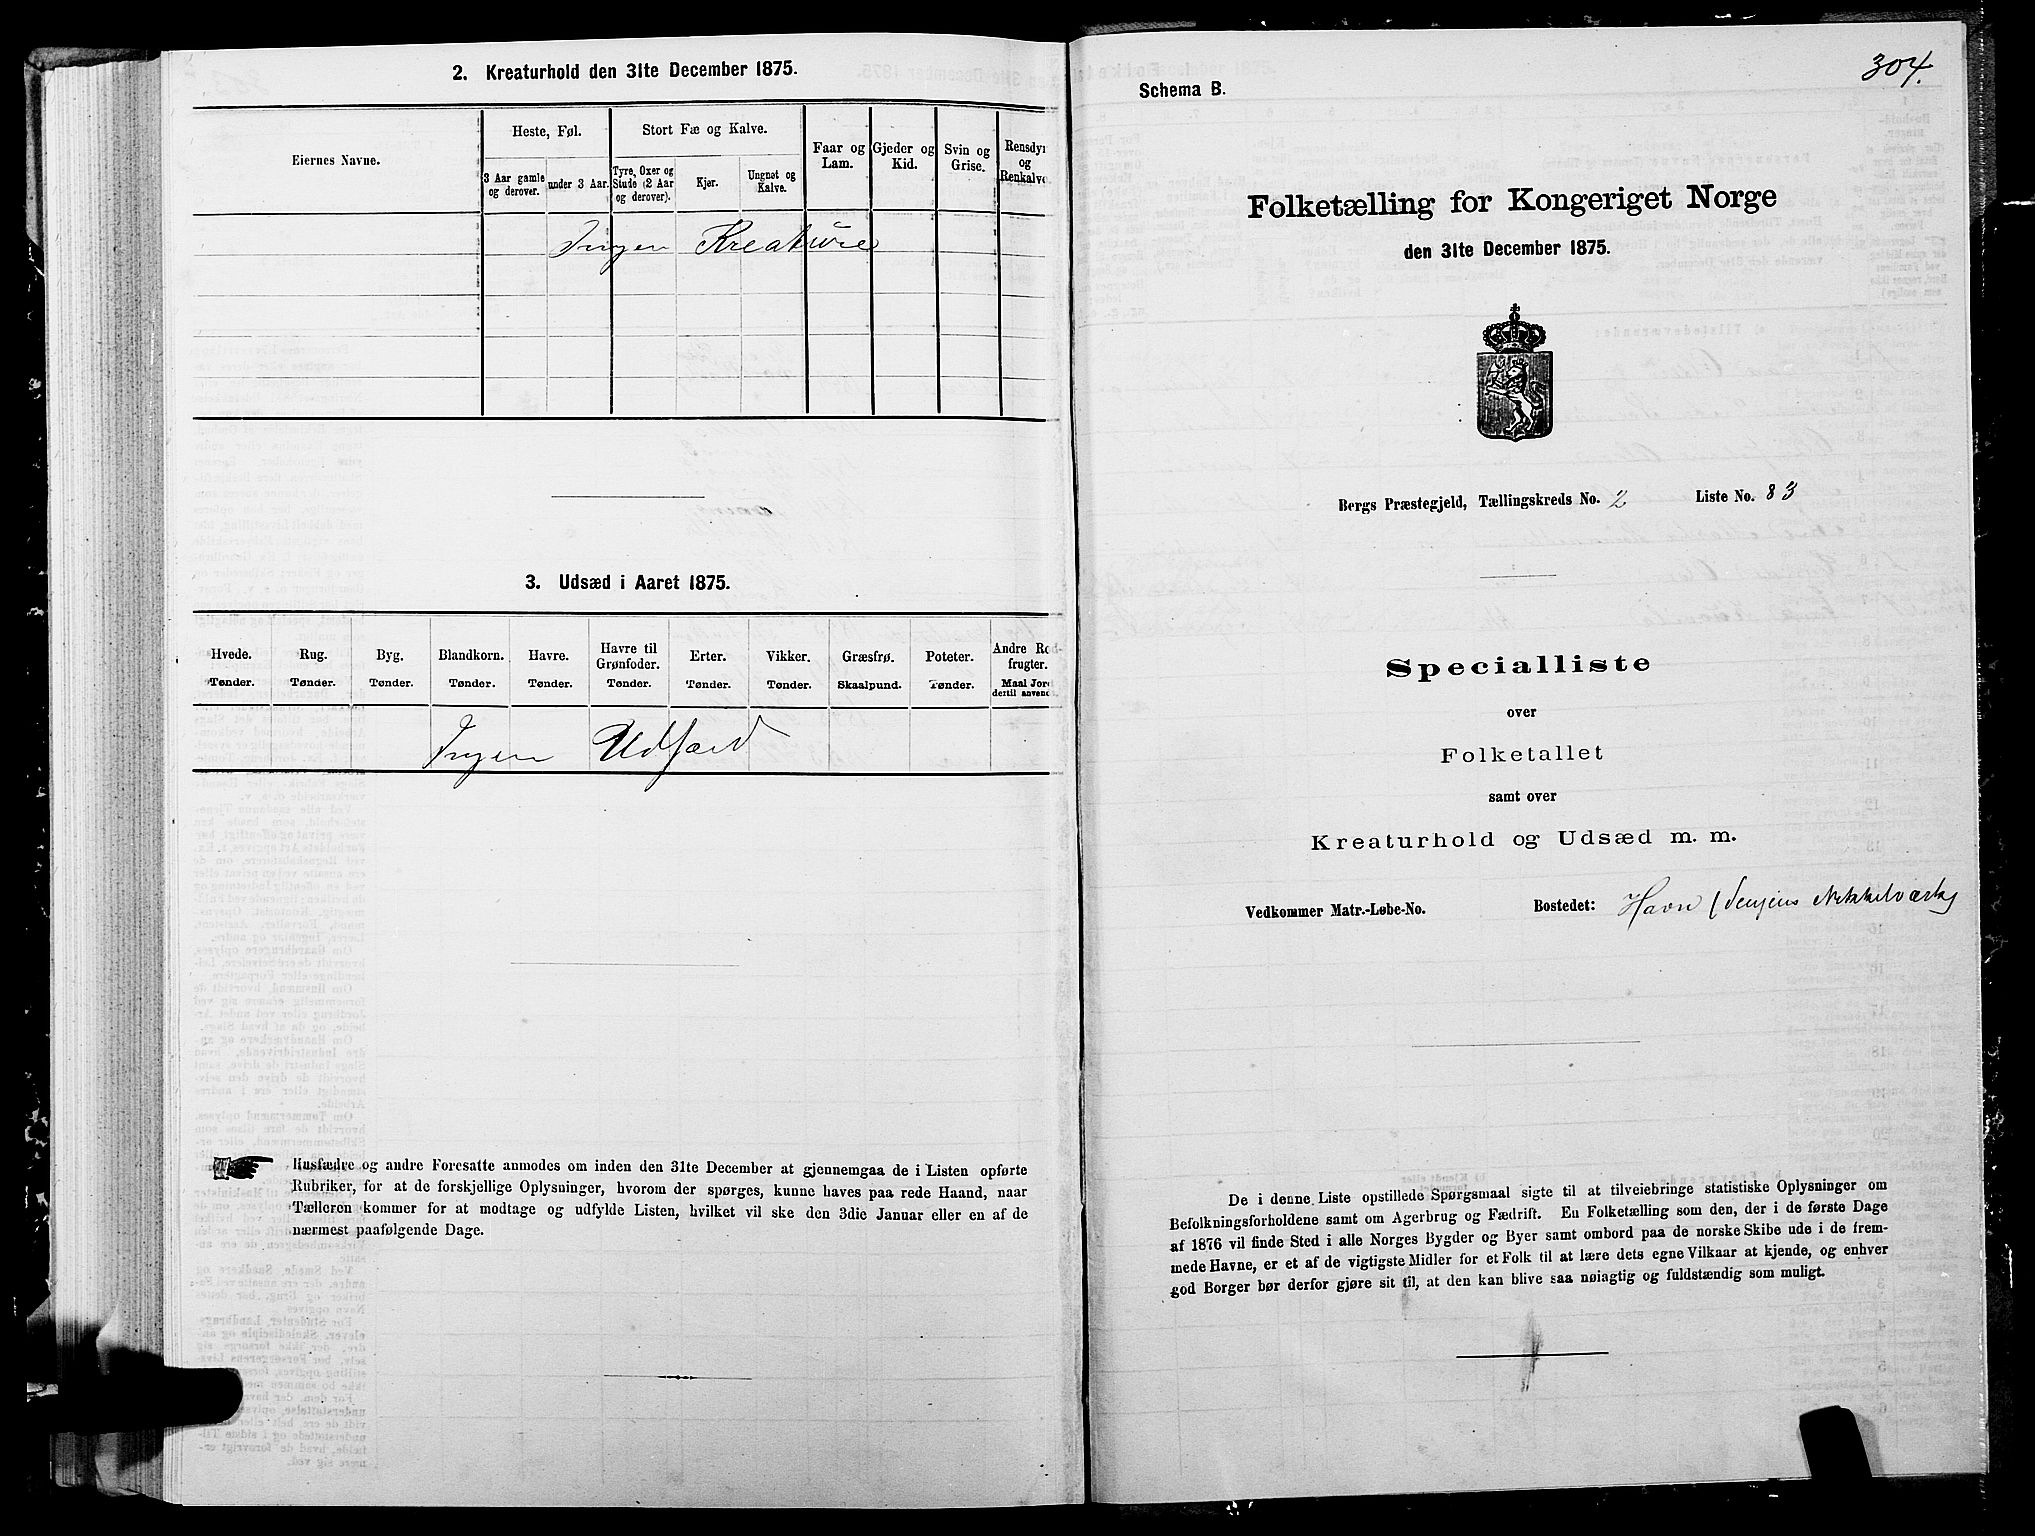 2. Kreaturhold den 31te December 1875.
Eiernes Navne.
Heste, Føl.
3 Aar gamle og derover.
under 3 Aar.
Stort Fæ og Kalve.
Tyre, Oxer og Stude (2 Aar og derover).
Kjør.
Ungnøt og Kalve.
Faar og Lam.
Gjeder og Kid.
Svin og Grise.
Rensdyr og Renkalve
Ingen Kreature
3. Udsæd i Aaret 1875.
Hvede. Rug. Byg. Blandkorn. Havre. Havre til Grønfoder. Erter. Vikker. Græsfrø. Poteter. Andre Rodfrugter.
Tønder. Tønder. Tønder. Tønder. Tønder. Tønder. Tønder. Tønder. Skaalpund. Tønder. Maal Jord dertil anvendt.
Ingen Udsæd
Husfædre og andre Foresatte anmodes om inden den 31te December at gjennemgaa de i Listen opførte
Rubriker, for at de forskjellige Oplysninger, hvorom der spørges, kunne haves paa rede Haand, naar
Tælleren kommer for at modtage og udfylde Listen, hvilket vil ske den 3die Januar eller en af de
nærmest paafølgende Dage.
304.
Schema B.
Folketælling for Kongeriget Norge
den 31te December 1875.
Bergs Præstegjeld, Tællingskreds No. 2 Liste No. 83
Specialliste
over
Folketallet
samt over
Kreaturhold og Udsæd m. m.
Vedkommer Matr.-Løbe-No. Bostedet: Havn (Senjens Nikkelværk)
De i denne Liste opstillede Spørgsmaal sigte til at tilveiebringe statistiske Oplysninger om
Befolkningsforholdene samt om Agerbrug og Fædrift. En Folketælling som den, der i de første Dage
af 1876 vil finde Sted i alle Norges Bygder og Byer samt ombord paa de norske Skibe ude i de frem-
mede Havne, er et af de vigtigste Midler for et Folk til at lære dets egne Vilkaar at kjende, og enhver
god Borger bør derfor gjøre sit til, at den kan blive saa nøiagtig og fuldstændig som muligt.